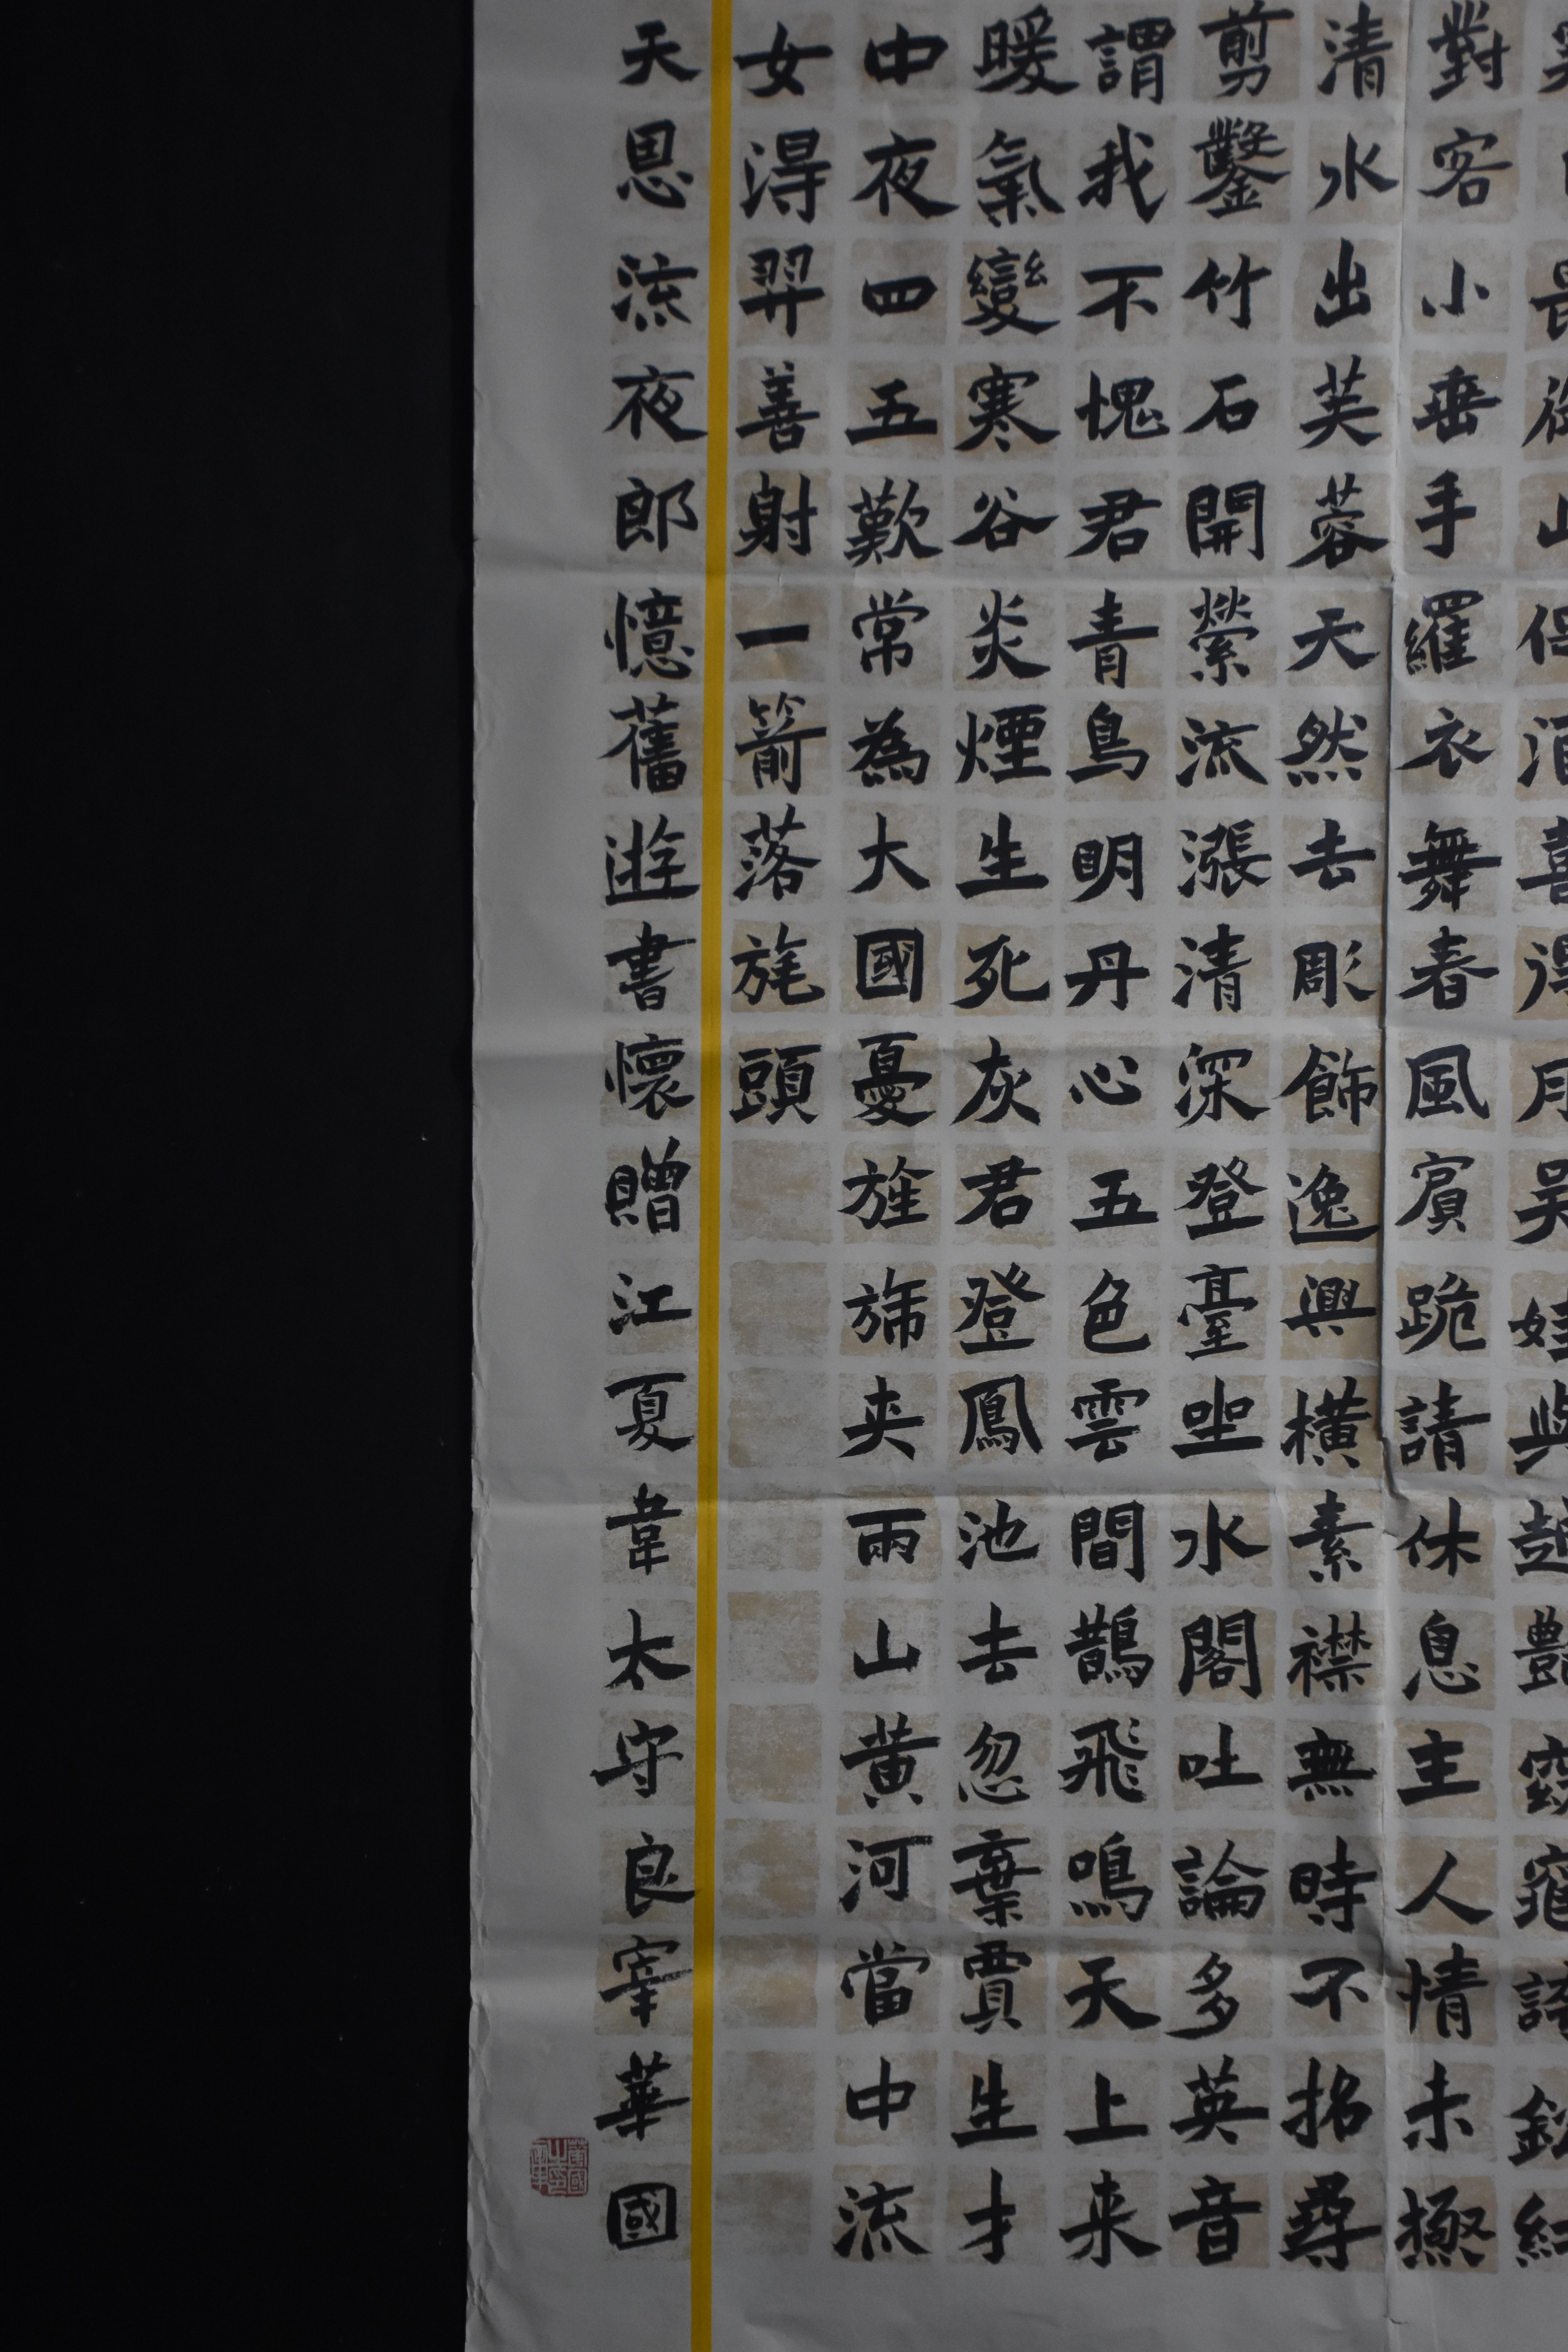 對客小垂手羅衣舞春風賓跪請休息主人情未極
清水出芙蓉天然去彫飾逸興橫素襟無時不招尋
剪鑿竹石開縈流漲清深登臺坐水閣吐論多英音
謂我不愧君青鳥明丹心五色雲間鵲飛鳴天上来
暖氣變寒谷炎煙生死灰君登鳳池去忽棄賈生才
中夜四五歎常為大國憂旌旆夾兩山黃河當中流
女得羿善射一箭落旄頭
天恩流夜郎憶舊遊書懷贈江夏韋太守良宰華國